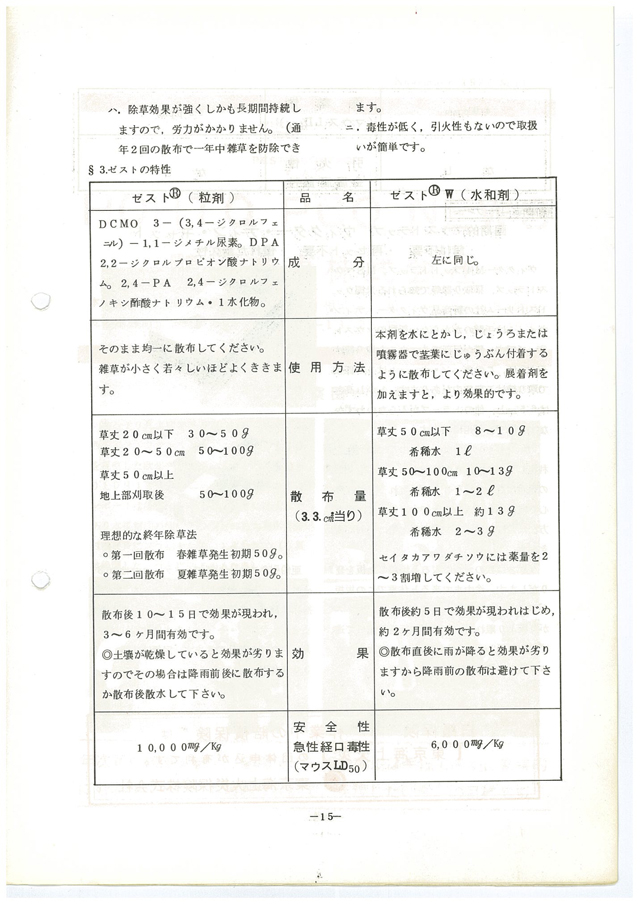 ハ．除草効果が強くしかも長期間持続し
ますので，労力がかかりません。（通
年２回の散布で一年中雑草を防除でき
ます。
ニ．毒性が低く，引火性もないので取扱
いが簡単です。
§３.ゼストの特性
ゼスト®（粒剤）
品名
ゼスト®W（水和剤）
ＤＣＭＯ ３－（３,４－ジクロルフェ
ニル）－１,１－ジメチル尿素。ＤＰＡ
２,２－ジクロルプロピオン酸ナトリウ
ム。２,４－ＰＡ ２,４－ジクロルフェ
ノキシ酢酸ナトリウム・１水化物。
成分
左に同じ。
そのまま均一に散布してください。
雑草が小さく若々しいほどよくききま
す。
使用方法
本剤を水にとかし，じょうろまたは
噴霧器で茎葉にじゅうぶん付着する
ように散布してください。展着剤を
加えますと，より効果的です。
草丈２０㎝以下 ３０～５０g
草丈２０～５０㎝ ５０～１００g
草丈５０㎝以上
地上部刈取後 ５０～１００g
理想的な終年除草法
○第一回散布 春雑草発生初期５０g。
○第二回散布 夏雑草発生初期５０g。
散布量
（3.3.㎝²当り）
草丈５０㎝以下 ８～１０g
希稀水 １ℓ
草丈５０～１００㎝ １０～１３g
希稀水 １～２ℓ
草丈１００㎝以上 約１３g
希稀水 ２～３g
セイタカアワダチソウには薬量を２
～３割増してください。
散布後１０～１５日で効果が現われ，
３～６ヶ月間有効です。
◎土壌が乾燥していると効果が劣りま
すのでその場合は降雨前後に散布する
か散布後散水して下さい。
効果
散布後約５日で効果が現われはじめ，
約２ヶ月間有効です。
◎散布直後に雨が降ると効果が劣り
ますから降雨前の散布は避けて下さ
い。
１０,０００mg/Kg
安全性
急性経口毒性
（マウスLD50）
６,０００mg/Kg
―１５―